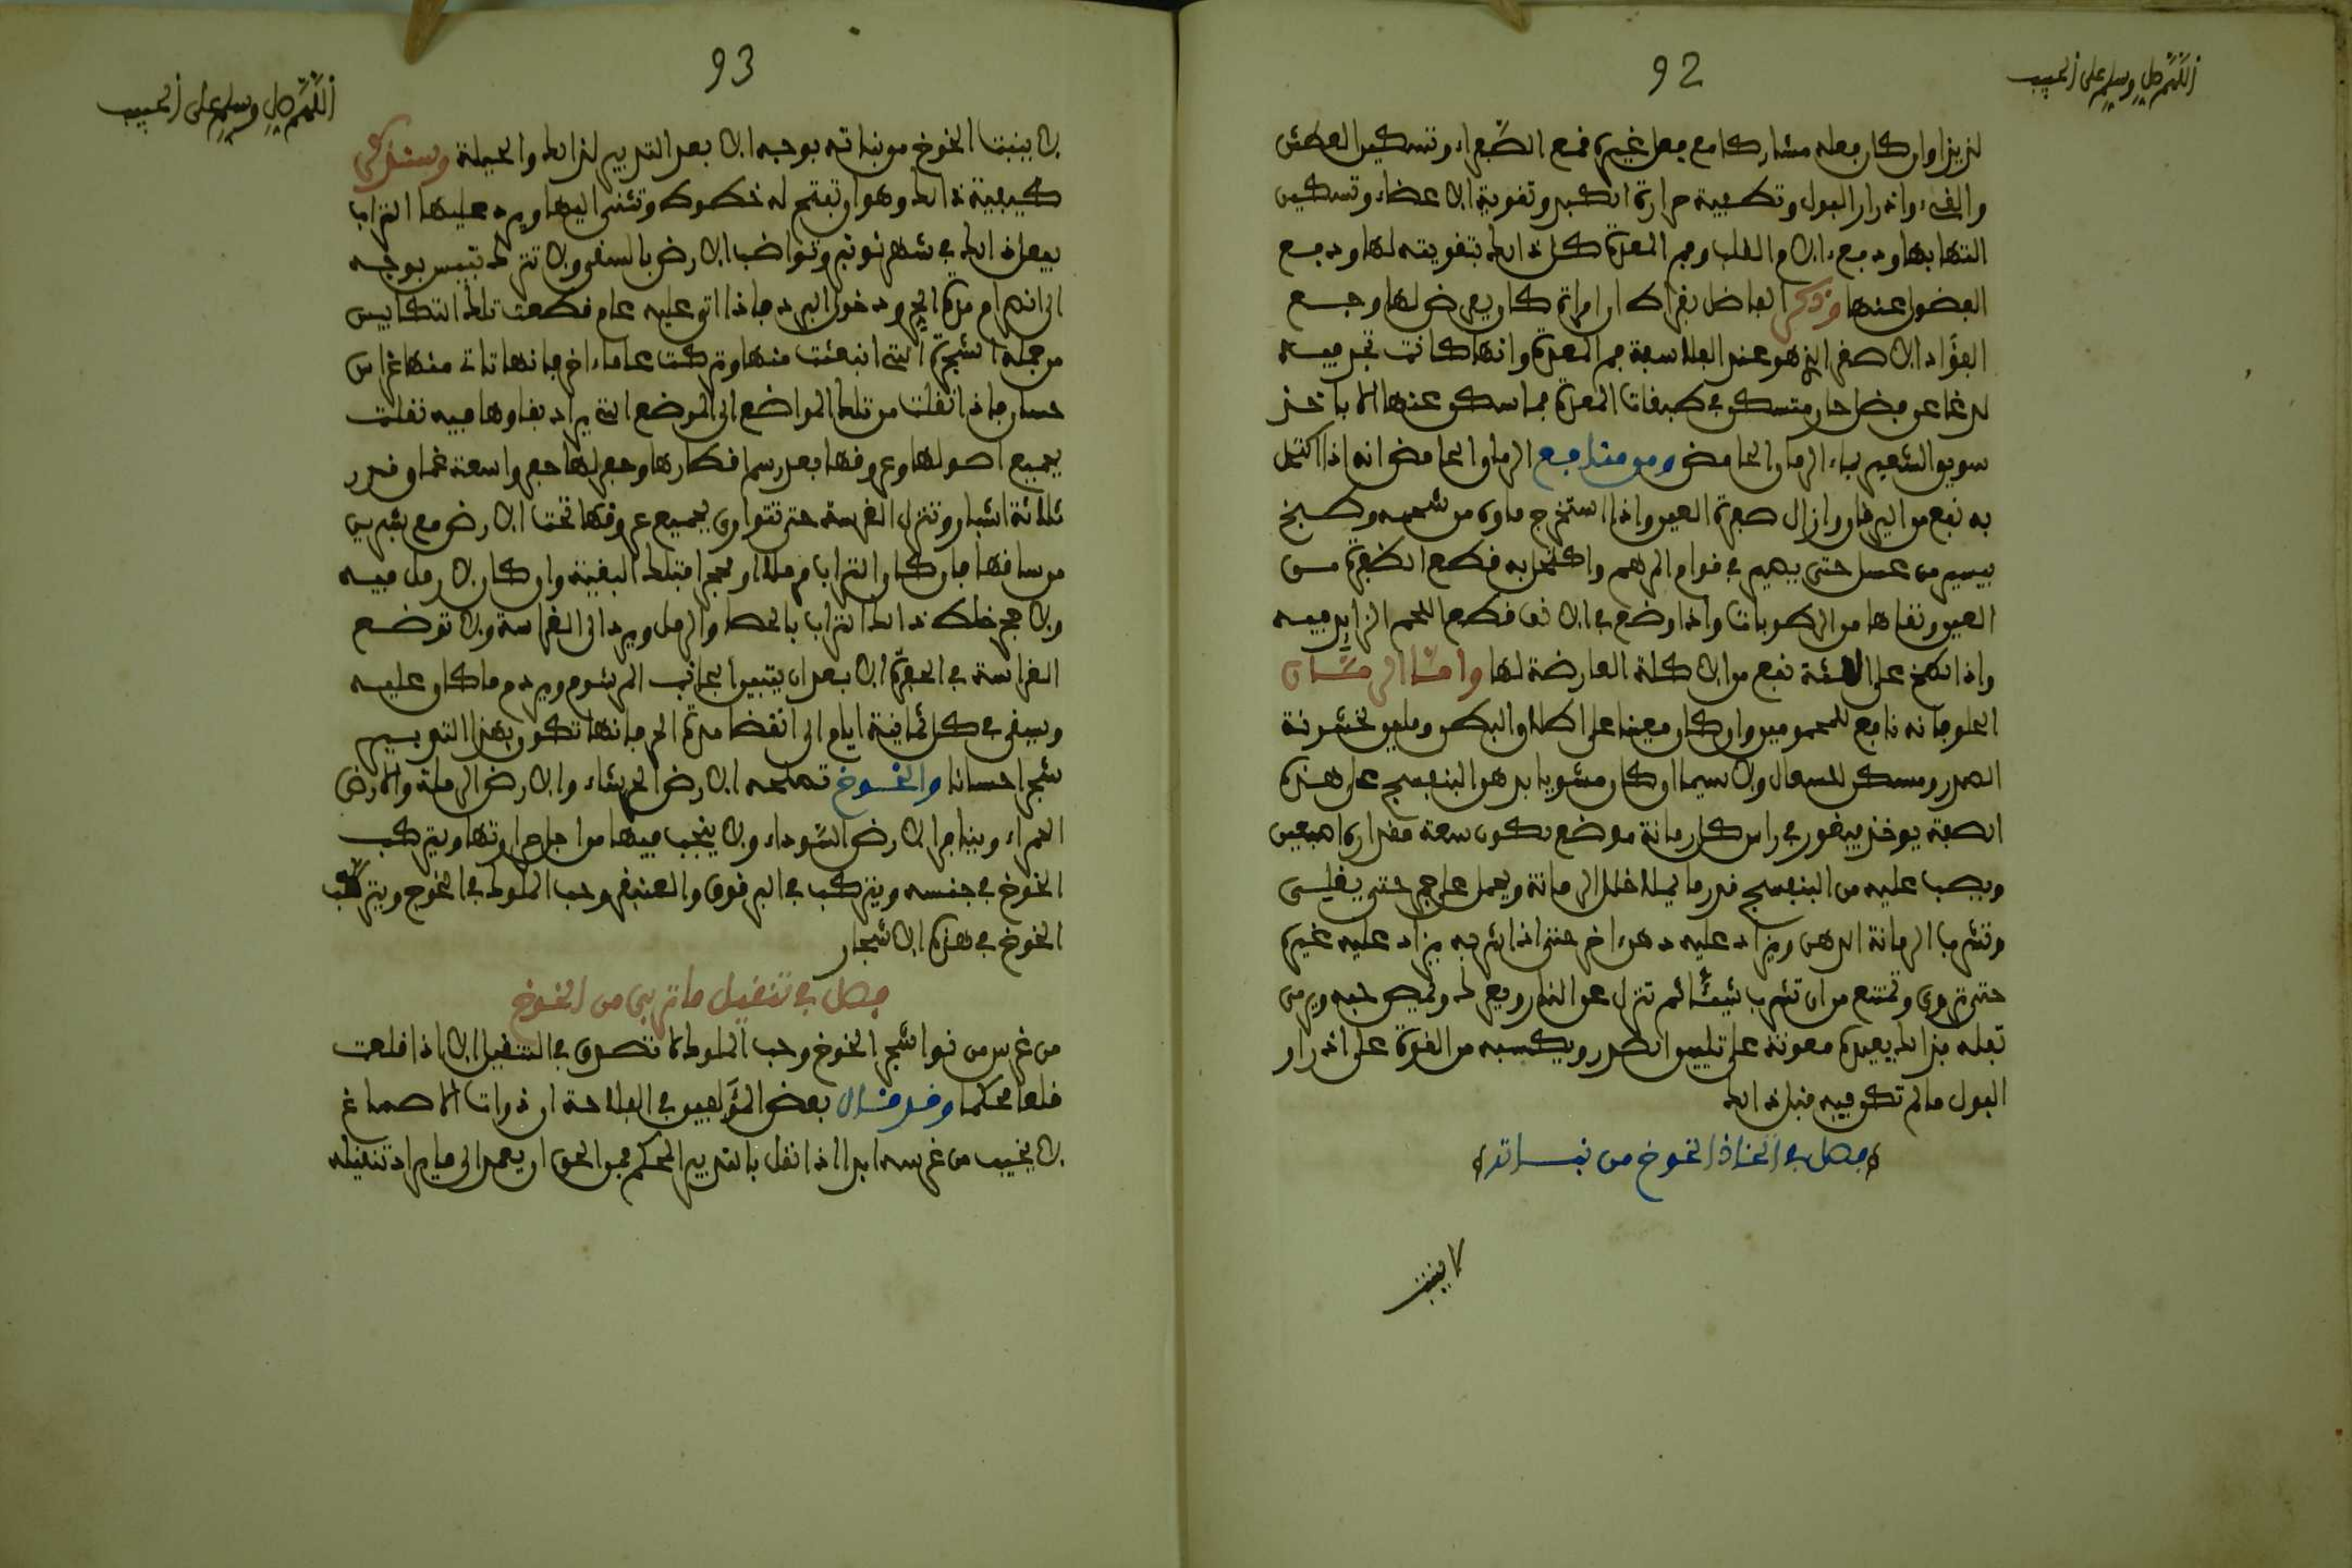 اللهم صل وسلم على الحبيب
92
لذيذا وان كان فعله مشاركا مع فعل غيره قمع الصفراء وتسكين العطش
والقيء وادرار البول وتطفية حرارة الكبد وتقوية الاعضاء وتسكين
التهابها ودفع الام القلب وفم المعدة كل ذالك بتقويته لها ودفع
الفضول عنها وذكر الفاضل بقراط ان امراة كان يعرض لها وجع
الفؤاد الاصغر الذي هو عند الفلاسفة فم المعدة وانها كانت تجد فيه
لدغا عن فضل حار متسكن في طبقات المعدة فما سكن عنها الا باخذ
سويق الشعير بماء الرمان الحامض ومن منافع الرمان الحامض انه اذا اكتحل
به نفع من اليرقان وازال صفرة العين واذا استخرج ماوه من شحمه وطبخ
بيسير من عسل حتى يصير في قوام المرهم واكتحل به قطع الظفرة من
العين ونقاها من الرطوبات واذا وضع في الانف قطع اللحم الزايد فيه
واذا لطخ على اللثة نفع من الاكلة العارضة لها واما الرمان
الحلو فانه نافع للمحمومين وان كان معينا على اطلاق البطن وملين لخشونة
الصدر ومسكن للسعال ولا سيما ان كان مشويا بدهن البنفسج على هذه
الصفة يوخذ فيقور في راس كل رمانة موضع تكون سعة مقداره اصبعين
ويصب عليه من البنفسج قدر ما يملا خلل الرمانة ويحمل على جمر حتى يغلى
وتشرب الرمانة الدهن ويزاد عليه دهن اخر حتى اذا شربه يزاد عليه غيره
حتى تروى وتمتنع من ان تشرب شيئا ثم تنزل عن النار ويعرك ويمص حبه ويرمى
تفله فذالك يفيده معونة على تليين الصدر ويكسبه من القوة على ادرار
البول ما لم تكن فيه قبل ذالك
فصل في اتخاذ الخوخ من نباته
لا ينبت
اللهم صل وسلم على الحبيب
93
لا ينبت الخوخ من نباته بوجه الا بعد التدبير لذالك والحيلة وسنذكر
كيفية ذالك وهو ان تفتح له خطوط وتثنى اليها ويرد عليها التراب
يفعل ذالك في شهر نونبر وتواضب الارض بالسقي ولا تترك تيبس بوجه
الى انصرام مدة الحر ودخول البرد فاذا اتى عليه عام قطعت تلك التكابيس
من جملة الشجرة التي انبعثت منها وتركت عاما اخر فانها تات منها غراس
حسان فاذا نقلت من تلك المواضع الى الموضع التي يراد بقاوها فيه نقلت
بجميع اصولها وعروقها بعد رسم اقطارها وحفر لها حفر واسعة غماق قدر
ثلاثة اشبار وتنزل الغرسة حتى تتوارى بجميع عروقها تحت الارض مع شبرين
من ساقها فان كان التراب مرملا او محجرا فتلك البغية وان كان لا رمل فيه
ولا حجر خلط ذالك التراب بالحصا والرمل ويرد الى الغراسة ولا توضع
الغراسة في الحفرة الا بعد ان يتبين الجانب المرشوم ويردم ما كان عليه
ويسقى في كل ثمانية ايام الى انقضا مدة الحر فانها تكون بهذا التدبير
شجرا حسانا والخوخ تصلحه الارض الحرشاء والارض الرملة والارض
الحمراء وينافر الارض السوداء ولا ينجب فيها من اجل حرارتها ويتركب
الخوخ في جنسه ويتركب في البرقوق والصنيفر وحب الملوك في الخوخ ويتركب
الخوخ في هذه الاشجار
فصل في تنقيل ما تربى من الخوخ
من غرس من نوا شجر الخوخ وحب الملوك لا تصدق في التنقيل الا اذا قلعت
قلعا محكما وقد قال بعض المؤلفين في الفلاحة ان ذوات الاصماغ
لا يخيب من غرسه ابدا اذا نقل بالتدبير المحكم فمن الحق ان يعمد الى ما يراد تنقيله